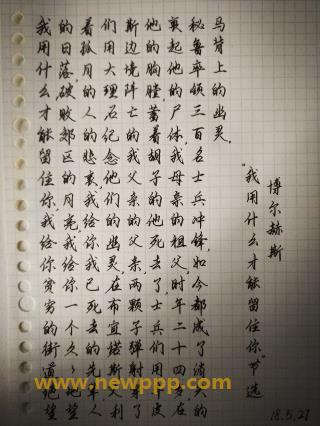 我用什么才能留住你,我给你贫穷的街道绝望
的日落,破败郊区的月亮,我给你一个久久地望
着孤月的人的悲哀,我给你我已死去的先辈,人
们用大理石纪念他们的幽灵,在布宜诺斯艾利
斯边境阵亡的我父亲的父亲,两颗子弹射穿了
他的胸膛,蓄着胡子的他死去了,士兵们用牛皮
裹起他的尸体,我母亲的祖父,时年二十四岁,在
秘鲁率领三百名士兵冲锋,如今都成了消失的
马背上的幽灵。
"我用什么才能留住你"节选
博尔赫斯
18.5.27
www.newppp.com